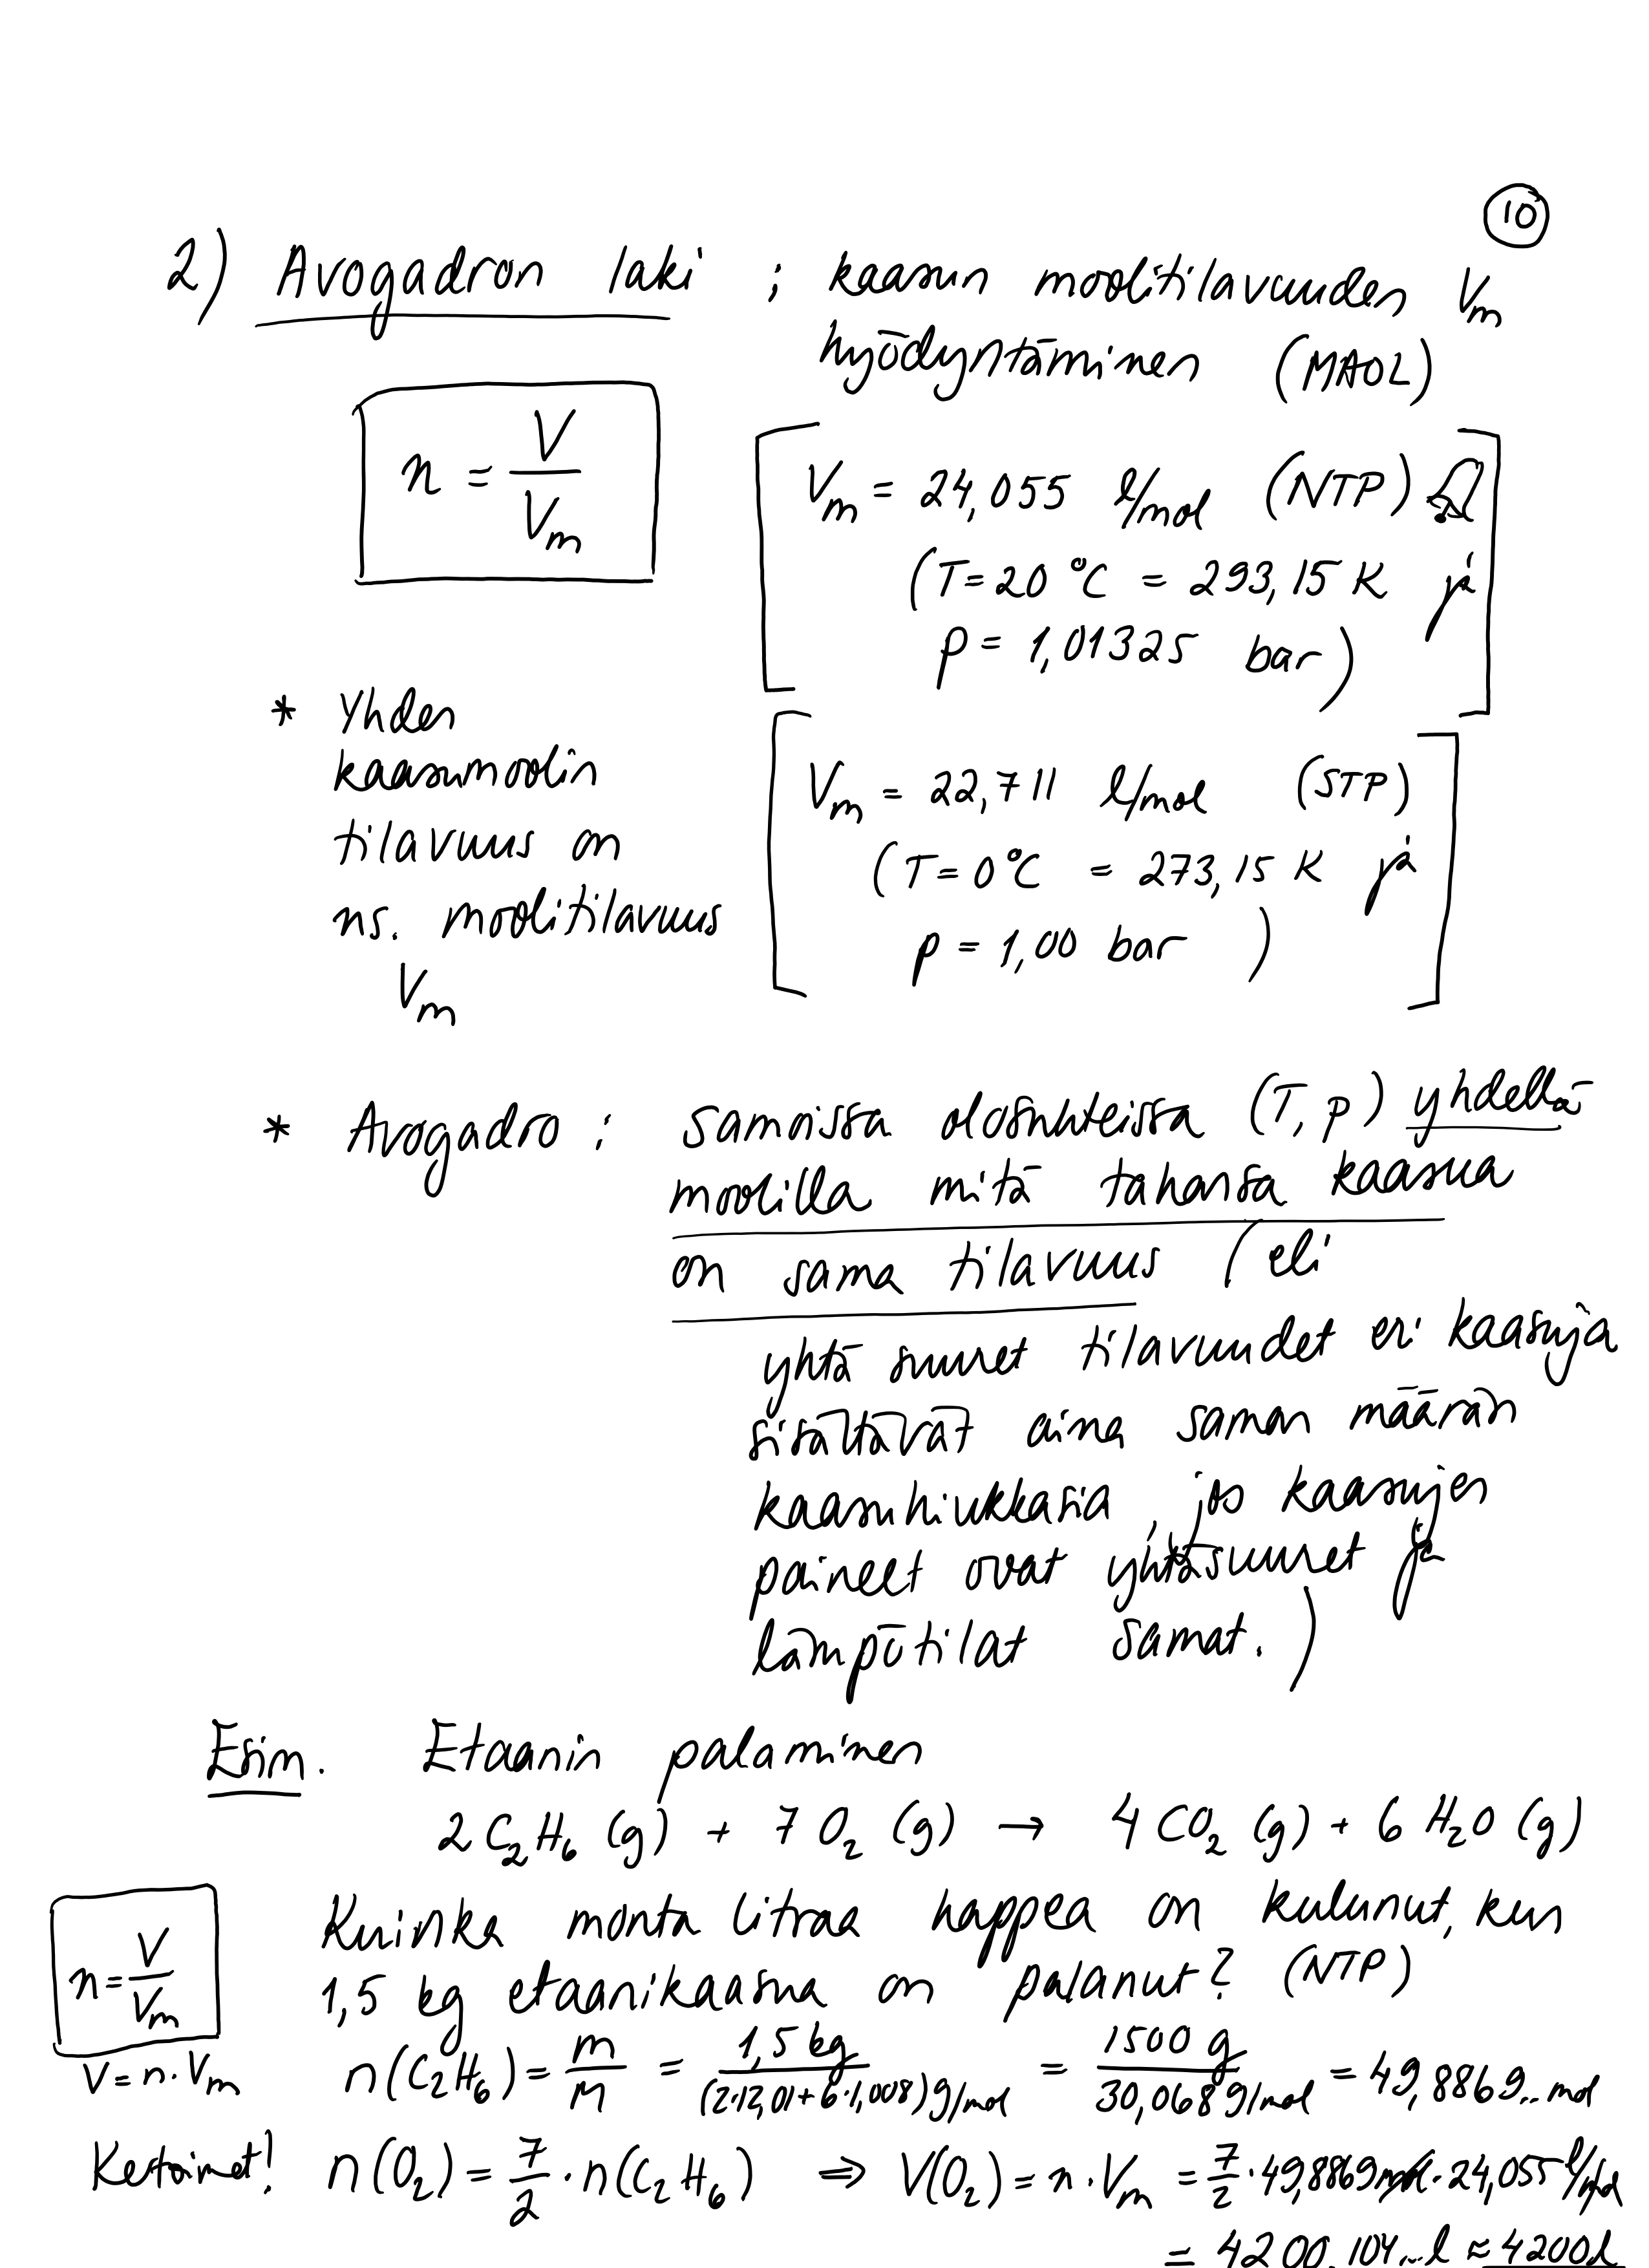 10
2) Avogadron laki ; kaasun moolitilavuuden Vm
hyödyntäminen (MAOL)
n = V/Vm
Vm = 24,055 l/mol (NTP)
(T = 20 °C = 293,15 K ja
p = 1,01325 bar)
* Yhden
kaasumoolin
tilavuus on
ns. moolitilavuus
Vm
Vm = 22,711 l/mol (STP)
(T = 0 °C = 273,15 K ja
p = 1,00 bar )
* Avogadro : samoissa olosuhteissa (T, p) yhdellä
moolilla mitä tahansa kaasua
on sama tilavuus (eli
yhtä suuret tilavuudet eri kaasuja
sisältävät aina saman määrän
kaasuhiukkasia, jos kaasujen
paineet ovat yhtäsuuret ja
lämpötilat samat. )
Esim. Etaanin palaminen
2 C2H6 (g) + 7 O2 (g) → 4 CO2 (g) + 6 H2O (g)
Kuinka monta litraa happea on kulunut, kun
1,5 kg etaanikaasua on palanut? (NTP)
n = V/Vm
V = n · Vm
n(C2H6) = m/M = 1,5 kg/(2·12,01 + 6·1,008) g/mol = 1500 g/30,068 g/mol = 49,8869... mol
Kertoimet! n(O2) = 7/2 · n(C2H6) ⇒ V(O2) = n · Vm = 7/2 · 49,8869 mol · 24,055 l/mol
= 4200,104...l ≈ 4200 l